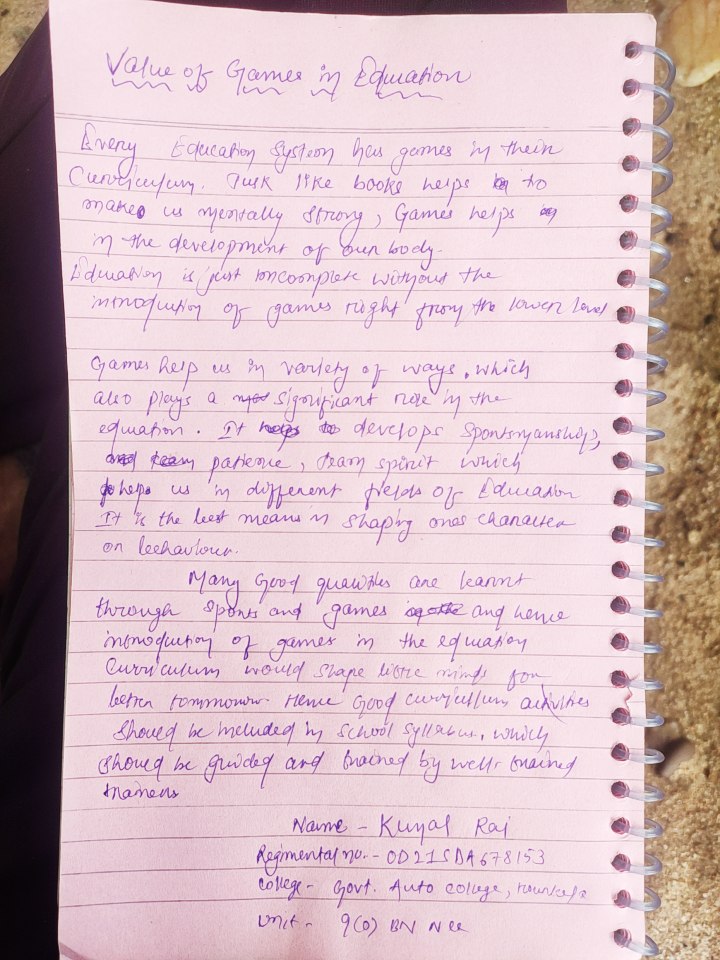 Value of Games in Education
Every Education System has games in their
Curriculum. Just like books helps to
make us mentally strong, Games helps
in the development of our body.
Education is just incomplete without the
introduction of games right from the lower level
Games help us in variety of ways, which
also plays a significant role in the
eduation. It develops Sportsmanship,
patience, team spirit which
help us in different fields of Education
It is the best means in shaping ones character
or beehaviour.
Many Good quawlities are learnt
through Sports and games and hence
introduction of games in the eduation
Curriculum would shape little minds for
better tommorow Hence Good curricullum activities
should be included in school syllabus, which
should be guided and trained by well-trained
trainers
Name - Kunal Rai
Regimental no. - OD21SDA678153
College - Govt. Auto college, rourkela
Unit - 9(O) BN Ncc